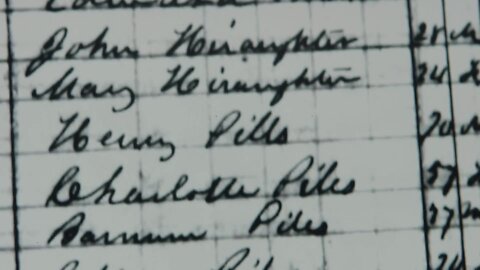 John Hiraughter 28 M
Mary Hiraughter 24
Henry Pills 70 M
Charlotte Piles 57
Barnum Piles 27 m
Piles